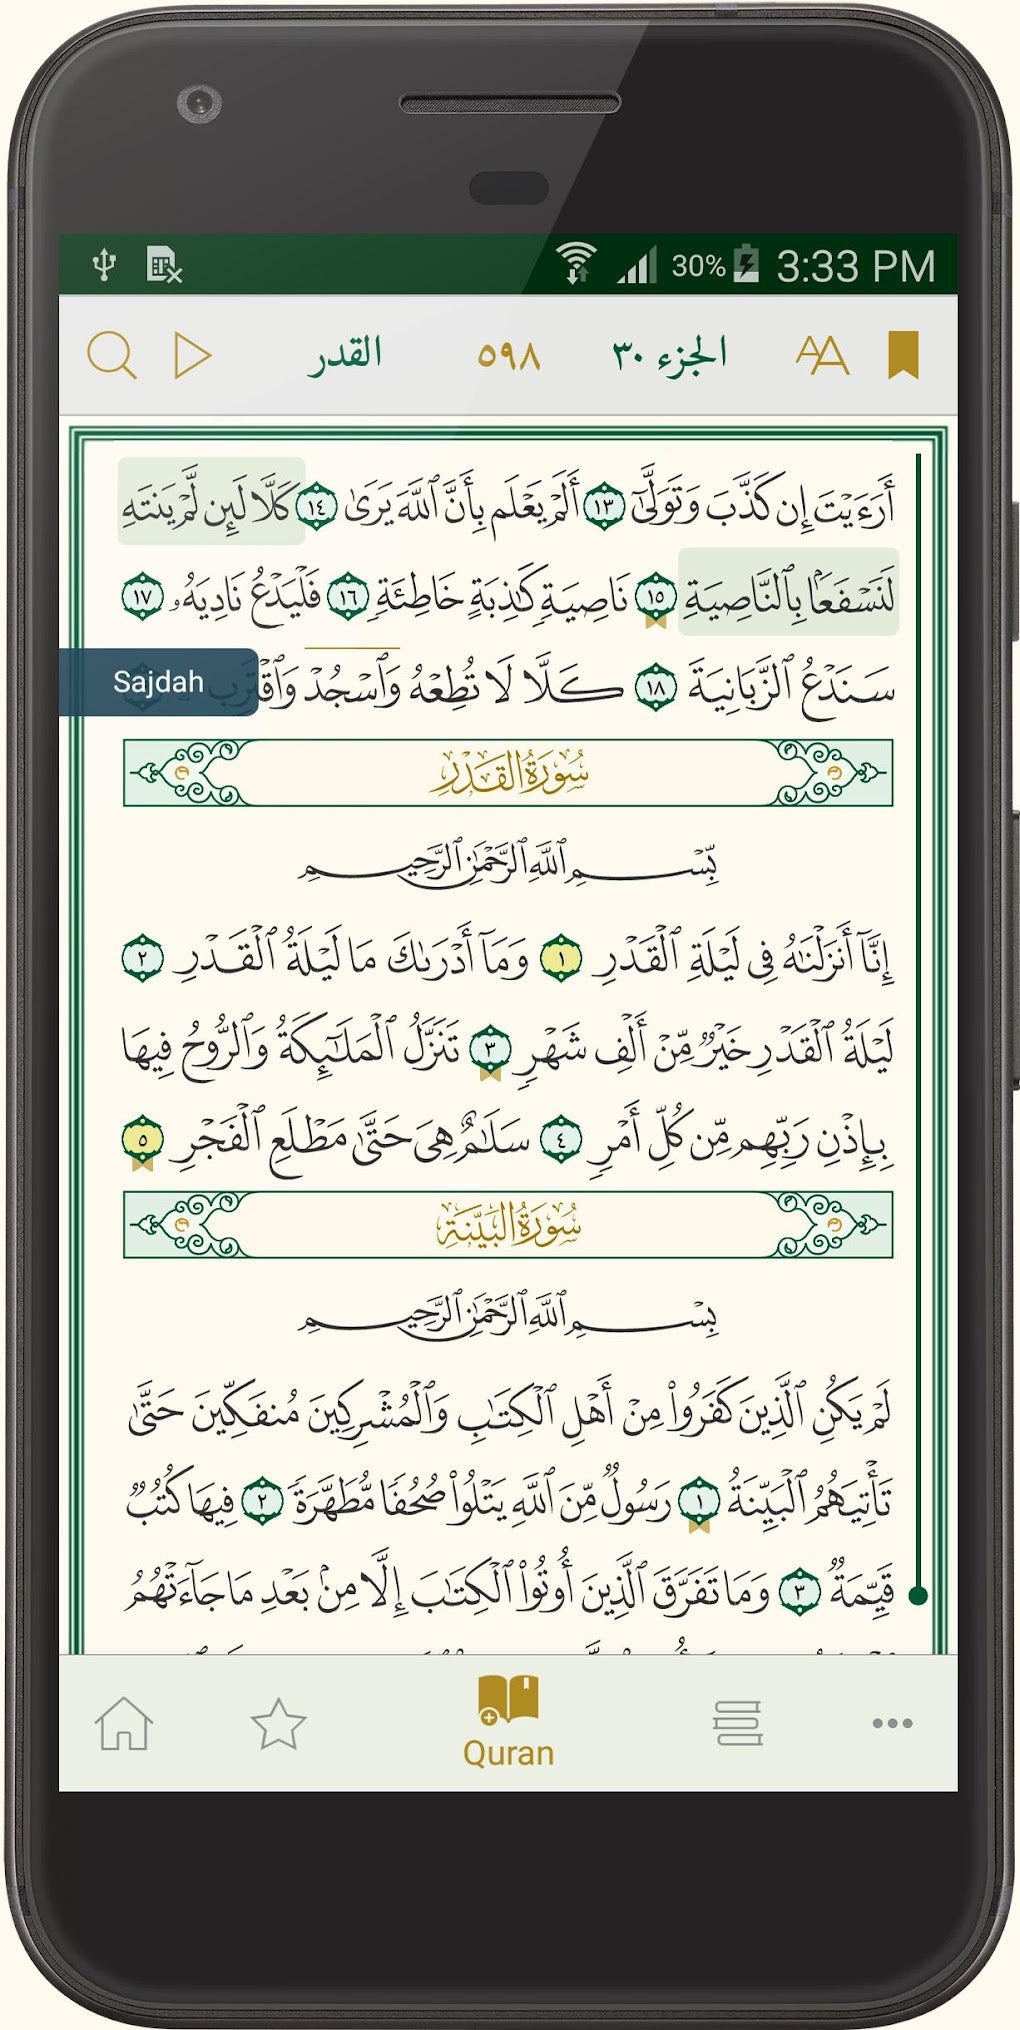 30% 3:33 PM
القدر ٥٩٨ الجزء ٣٠
أَرَءَيْتَ إِن كَذَّبَ وَتَوَلَّىٰٓ ١٣ أَلَمْ يَعْلَم بِأَنَّ ٱللَّهَ يَرَىٰ ١٤ كَلَّا لَئِن لَّمْ يَنتَهِ
لَنَسْفَعًۢا بِٱلنَّاصِيَةِ ١٥ نَاصِيَةٍ كَٰذِبَةٍ خَاطِئَةٍ ١٦ فَلْيَدْعُ نَادِيَهُۥ ١٧
سَنَدْعُ ٱلزَّبَانِيَةَ ١٨ كَلَّا لَا تُطِعْهُ وَٱسْجُدْ وَٱقْتَرِب
Sajdah
سُورَةُ القَدْرِ
بِّسْمِ ٱللَّهِ ٱلرَّحْمَٰنِ ٱلرَّحِيمِ
إِنَّآ أَنزَلْنَٰهُ فِى لَيْلَةِ ٱلْقَدْرِ ١ وَمَآ أَدْرَىٰكَ مَا لَيْلَةُ ٱلْقَدْرِ ٢
لَيْلَةُ ٱلْقَدْرِ خَيْرٌ مِّنْ أَلْفِ شَهْرٍ ٣ تَنَزَّلُ ٱلْمَلَٰٓئِكَةُ وَٱلرُّوحُ فِيهَا
بِإِذْنِ رَبِّهِم مِّن كُلِّ أَمْرٍ ٤ سَلَٰمٌ هِىَ حَتَّىٰ مَطْلَعِ ٱلْفَجْرِ ٥
سُورَةُ البَيِّنَةِ
بِسْمِ ٱللَّهِ ٱلرَّحْمَٰنِ ٱلرَّحِيمِ
لَمْ يَكُنِ ٱلَّذِينَ كَفَرُوا۟ مِنْ أَهْلِ ٱلْكِتَٰبِ وَٱلْمُشْرِكِينَ مُنفَكِّينَ حَتَّىٰ
تَأْتِيَهُمُ ٱلْبَيِّنَةُ ١ رَسُولٌ مِّنَ ٱللَّهِ يَتْلُوا۟ صُحُفًا مُّطَهَّرَةً ٢ فِيهَا كُتُبٌ
قَيِّمَةٌ ٣ وَمَا تَفَرَّقَ ٱلَّذِينَ أُوتُوا۟ ٱلْكِتَٰبَ إِلَّا مِنۢ بَعْدِ مَا جَآءَتْهُمُ
Quran